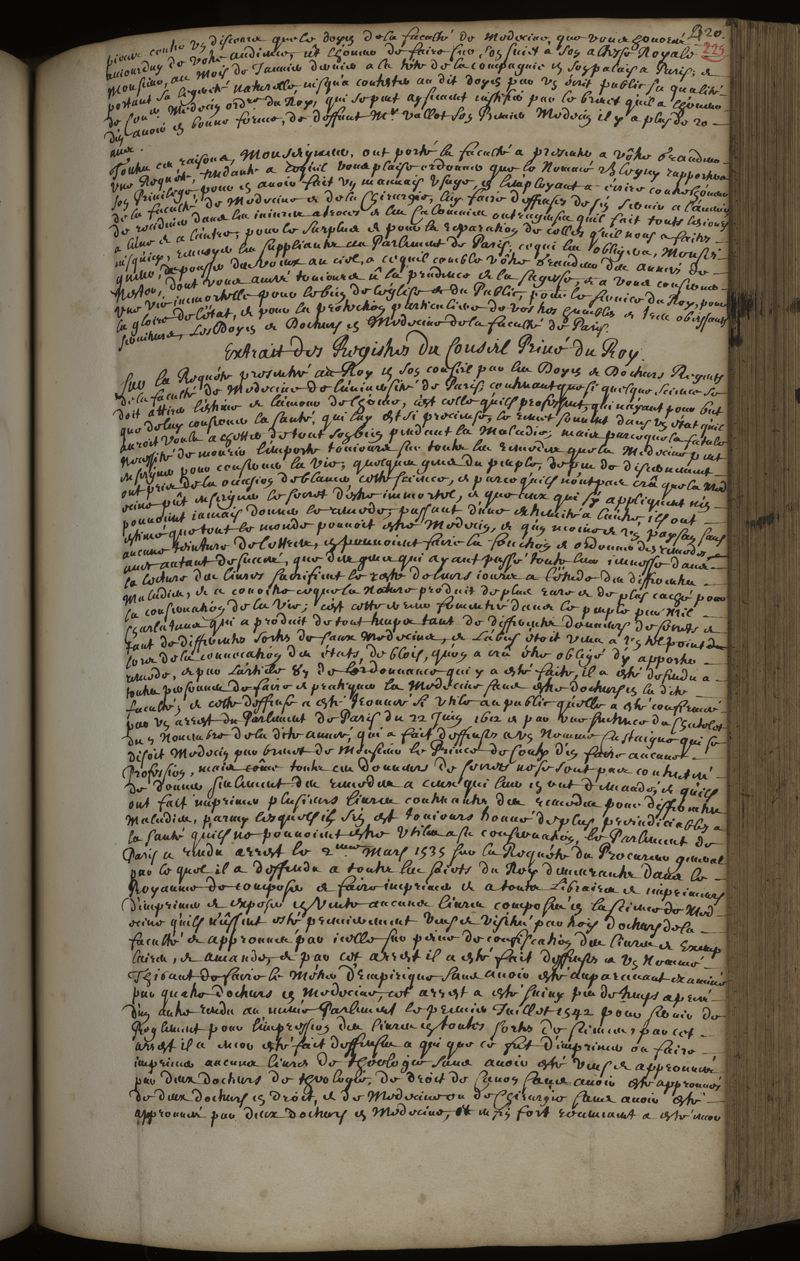 420.
225
pieux contre un discours que le doyen de la faculté de Medecine, que vous honorez
aujourduy de vostre audience, eut lhonneur de faire sur son sujet a son altesse Royale
Monsieur, au Mois de Janvier dernier a la teste de la compagnie en son palais a Paris; et
portant sa legereté naturelle jusqu'a contester au dit doyen par un écrit public sa qualité
de Medecin ordre du Roy, qui se peut aysement justifié par le brevet quil a
avoir en bonne forme, de deffunt Mr. Vallot son Premier Medecin il y a plus de 20
ans.
Toutes ces raisons, Monseigneur, ont porté la faculté a presenter a vôtre Grandeur
une Requête, tendante a ce quil vous plaise ordonner que le Nommé rapportera
son Privilege, pour en avoir fait un mauvais usage, en lemployant a écrire contre lhonneur
de la faculté de Medecine et de la Chirurgie, luy faire deffenses de sen servir a lavenir
de recidiver dans les injures atroces et les Calomnies outrageuses quil fait tous les jours
a lune et a lautre; pour le surplus et pour la reparation de celles quil nous a faites
jusquicy, renvoyer les supplians au Parlement de Paris; ce qui les obligera, Monsei
gneur, de pousser des voeux au ciel, a ce quil comble vôtre Grandeur des années de
Nestor, dont vous avez toujours eu la prudence et la sagesse, et a vous conserver
une vie immortelle pour le bien de leglise et du Public, pour le service du Roy, pour
la gloire de letat, et pour la protection particuliere de vos tres humbles et tres obeissants
serviteurs, Les Doyen et Docteurs en Medecine de la faculté de Paris.
Extrait des Registres du Conseil Privé du Roy.
Sur la Requête presentée au Roy en son conseil par les Doyen et Docteurs Regents
de la faculté de Medecine de luniversité de Paris; contenant que si quelque science se
doit attirer lestime et lamour de lhomme, cest celle quils professent, qui nayant pour but
que de luy conserver la santé, qui luy est si precieuse, le remet souvent dans un état quil
auroit voulu achetter de tout son bien pendant la Maladie; mais parce que la fatale
Necessité de mourir lemporte toujours sur toutes les remedes que la Medecine peut
enseigner pour conserver la vie; quelques gens du peuple, de peu de discernement
ont pris de la occasion de blamer cette science, et parce quils n'ont pas crû que la Med
ecine pût enseigner le secret d'estre immortel, et que ceux qui sy appliquent n'en
pouvoient jamais donner le remede; passant d'une extremité a lautre, ils ont
estimé que tout le monde pouvoit estre Medecin, et quun moine et un paysan sans
aucune teinture de lettres, en pouvoient faire la fonction et ordonner des remedes
avec autant de succez, que des gens qui ayant passé toute leur jeunesse dans
la lecture des livres sacrifient le reste de leurs jours a l'étude des differentes
Maladies, et a connoitre ce que la Nature produit de plus rare et de plus caché pour
la conservation de la vie; cest cette erreur fomentée dans le peuple par mil
Charlatans qui a produit de tout temps tant de differents donneurs de secrets et
tant de differentes sortes de faux Medecins, et Labus étoit venu a un tel point du
tems de la convocation des états, de blois, quon a crû être obligé dy apporter
remede, et par Larticle 87 de Lordonnance qui y a esté faite, il a esté deffendu a
toutes personnes de faire et pratiquer la Medecine sans estre docteurs en la dite
faculté; et cette deffense a esté trouvée si Utile au public quelle a esté confirmée
par un arrest du Parlement de Paris du 22 Juin 1612 et par une sentence du Chatelet
du 5 Novembre de la dite année, qui a fait deffenses a un Nommé Castaigne qui se
disoit Medecin par brevet de Monsieur le Prince de den faire aucune
Profession, mais côme toutes ces donneurs de secrets ne se sont pas contentez
de donner seulement des remedes a ceux qui leur en ont demandé, et quils
ont fait imprimer plusieurs livres contenants des remedes pour differentes
Maladies, parmy lesquels il sen est toujours trouvé de plus prejudiciables a
la santé quils ne pouvoient estre Utiles a sa conservation, le Parlement de
Paris a rendu arrest le 2me Mars 1535 sur la Requête du Procureur general
par le quel il a deffendu a toutes les sujets du Roy demeurants dans le
Royaume de composer et faire imprimer et a toutes Libraires et imprimeurs
d'imprimer et exposer en Vente aucuns livres composez en la science de Med
ecine qu'ils n'ussent esté premierement veus et visitez par trois docteurs de la
faculté et approuvez par icelle sur peine de confiscation des livres et Exemp
laires, et amande, et par cet arrest il a esté fait deffenses a un Nommé
Thibaut de faire le Métier D'empirique sans avoir esté auparavant examiné
par quatre docteurs en Medecine, cet arrest a esté suivy peu de temps aprés
d'un autre rendu au même Parlement le premier Juillet 1542 pour servir de
Reglement pour l'impression des livres en toutes sortes de sciences; par cet
arrest il a encor esté fait deffenses a qui que ce fût d'imprimer ou faire
imprimer aucuns livres de theologie sans avoir esté veus et approuvez
par deux docteurs de theologie, de droit de Canon sans avoir esté approuvez
de deux docteurs en droit, et de Medecine ou de Chirurgie sans avoir esté
approuvez par deux docteurs en Medecine; fort a esté encor